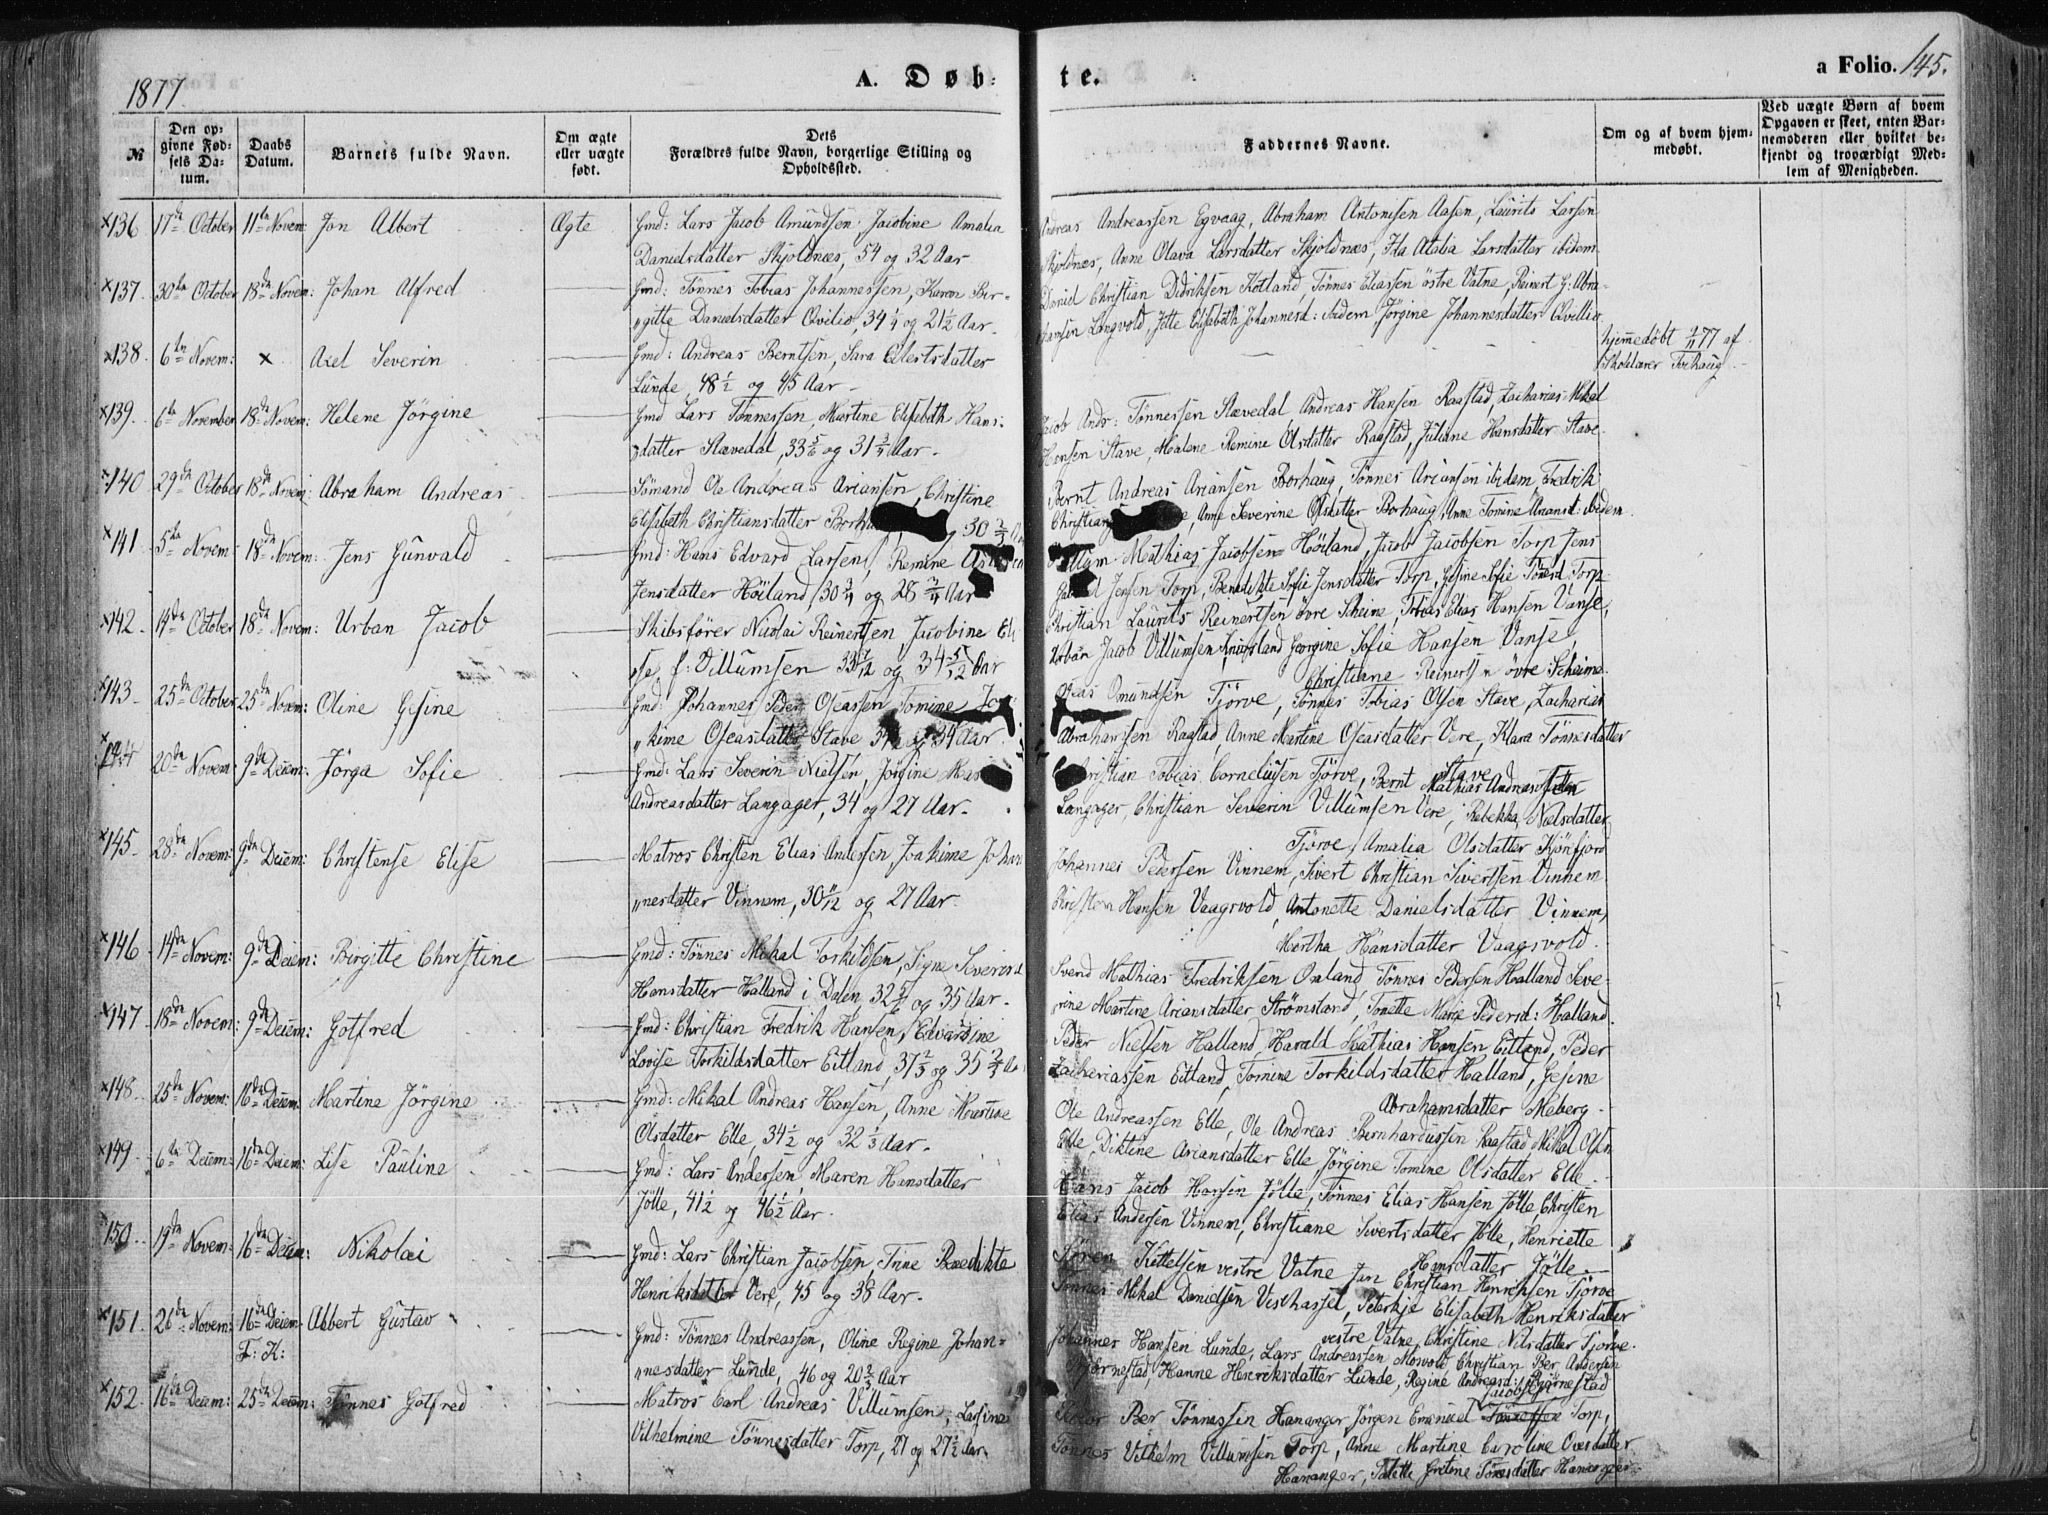 1877.
A. Døb-
te.
a Folio. 145.
№
Den op-
givne Fød-
sels Da-
tum.
Daabs
Datum.
Barnets fulde Navn.
Om ægte
eller uægte
født.
Dets
Forældres fulde Navn, borgerlige Stilling og
Opholdssted.
Faddernes Navne.
Om og af hvem hjem-
medøbt.
Ved uægte Børn af hvem
Opgaven er skeet, enten Bar-
nemoderen eller hvilket be-
kjendt og troværdigt Med-
lem af Menigheden.
×136 17de October 11te Novem: Jon Albert Ægte Gmd: Lars Jacob Amundsen, Jacobine Amalia
Danielsdatter Skjoldnæs, 54 og 32 Aar
Andreas Andreassen Egvaag, Abraham Antonisen Aasen, Laurits Larsen
Skjoldnæs, Anne Olava Larsdatter Skjoldnæs, Ida Atalia Larsdatter ibidem
×137 30te October 18de Novem: Johan Alfred Gmd: Tønnes Tobias Johannessen, Karen Bir-
"gitte Danielsdatter Qvilio, 34 1/4 og 21 1/2 Aar.
Daniel Christian Didriksen Kotland, Tønnes Eliassen østre Vatne, Reinert G: Abra-
hamsen Langvold, Jitte Elisabeth Johannesd: ibidem Jørgine Johannesdatter Qvillio
×138. 6te Novem: × Axel Severin Gmd: Andreas Berntsen, Sara Eilertsdatter
Lunde, 48 1/2 og 45 Aar
hjemedøbt 7/11 77 af
Skolelærer
×139. 6te November 18de Novem: Helene Jørgine Gmd Lars Tønnessen, Martine Elisebeth Hans-
"datter Stavedal, 33 5/6 og 31 3/4 Aar.
Jacob Andr: Tønnessen Stævedal Andreas Hansen Raastad, Zacharias Mikal
Hansen Stave, Malene Remine Olsdatter Raastad, Juliane Hansdatter Stave.
×140 29de October 18de Novem: Abraham Andreas Sømand Ole Andreas Ariansen, Christine
Elisabeth Christiansdatter 30 2/3
Bernt Andreas Ariansen Borhaug Tønnes Ariansen ibidem, Fredrik
Anne Severine Olsdatter Borhaug, Anne Tomine Ariansd: ibidem
×141 5te Novem: 18de Novem: Jens Gunvald Gmd: Hans Edvard Larsen, Remine
Jensdatter Høiland, 30 3/4 og 28 3/4 Aar
Mathias Jacobsen Høiland, Jacob Jacobsen Torp Jens
Jensen Torp, Benedikte Sofie Jensdatter Torp, Gesine Sofie Tønesd Torp
×142. 14de October 18de Novem: Urban Jacob Skibsfører Nicolai Reinertsen Jacobine
f: Villumsen 33 7/12 og 34 5/12 Aar
Christian Laurits Reinertsen øvre Skeime, Tobias Elias Hansen Vanse,
Urban Jacob Villumsen Georgine Sofie Hansen Vanse,
Christiane Reinertsen øvre Skeime.
×143. 25de October 25de Novem: Oline Gesine Gmd: Johannes Peder Oseassen Tomine Jo-
"kime Oseasdatter Stave og 34 Aar.
Oseas Omundsen Tjørve, Tønnes Tobias Olsen Stave, Zacharias
Abrahamsen Raastad, Anne Martine Oseasdatter Vere, Klara Tønnesdatter
Stave
×144 20de Novem: 9de Decem: Jørga Sofie Gmd: Lars Severin Nielsen, Jørgine
Andreasdatter Langager, 34 og 27 Aar.
Christian Tobias Corneliusen Tjørve, Bernt Mathias Andreassen
Langager, Christian Severin Villumsen Vere, Rebekka Nielsdatter
Tjørve, Amalia Olsdatter Kjørefjord
×145. 28de Novem: 9de Decem: Christense Elise Matros Christen Elias Andersen, Joakime Johan
"nesdatter Vinnem, 30 11/12 og 27 Aar.
Johannes Pedersen Vinnem, Sivert Christian Sivertsen Vinnem
Christen Hansen Vaagsvold, Antonette Danielsdatter Vinnem,
Mertha Hansdatter Vaagsvold.
×146 14de Novem: 9de Decem: Birgitte Christine Gmd: Tønnes Mikal Torkildsen, Signe Severine
Hansdatter Halland i Dalen 32 5/6 og 35 Aar.
Svend Mathias Fredriksen Omland, Tønnes Pedersen Halland Seve-
"rine Martine Ariansdatter Strømsland, Tonette Marie Pedersd: Halland.
×147 18de Novem: 9de Decem: Gotfred Gmd: Christian Fredrik Hansen, Edvardine
Lovise Torkildsdatter Eitland, 31 2/3 og 35 3/4 Aar
Peder Nielsen Halland, Harald Mathias Hansen Eitland, Peder
Zachariassen Eitland, Tomine Torkildsdatter Halland, Gesine
Abrahamsdatter Meberg.
×148. 25de Novem: 16de Decem: Martine Jørgine Gmd: Mikal Andreas Hansen, Anne Martine
Olsdatter Elle, 34 1/2 og 32 1/3 Aar.
Ole Andreassen Elle, Ole Andreas Bernhardussen Raastad Mikal Olsen
Elle, Diktine Ariansdatter Elle, Jørgine Tomine Olsdatter Elle
×149. 6te Decem: 16de Decem: Lise Pauline Gmd: Lars Andersen, Maren Hansdatter
Jølle, 41 1/2 og 46 1/2 Aar.
Hans Jacob Hansen Jølle, Tønnes Elias Hansen Jølle, Christen
Elias Andersen Vinnem, Christiane Sivertsdatter Jølle, Henriette
Hansdatter Jølle.
150. 19de Novem: 16de Decem: Nikolai Gmd: Lars Christian Jacobsen, Trine Benedikte
Henriksdatter Vere, 45 og 38 Aar.
Søren Kettelsen vestre Vatne Jan Christian Henriksen Tjørve
Tønnes Mikal Danielsen Vesthassel, Peterkje Elisabeth Henriksdatter
vestre Vatne, Christine Nilsdatter Tjørve.
×151. 26de Novem: 16de Decem: F: K: Albert Gustav Gmd: Tønnes Andreassen, Oline Regine Johan-
"nesdatter Lunde, 46 og 20 2/3 Aar
Johannes Hansen Lunde, Lars Andreassen Mosvold Christian Ber Andersen
Bjørnestad, Hanne Henriksdatter Lunde, Regine Andreasd: Bjørnestad
×152. 16de Decem: 25de Decem: Tønnes Gotfred Matros Carl Andreas Villumsen, Lasine
Vilhelmine Tønnesdatter Torp, 27 og 27 1/2 Aar.
Jacobsen
Ber Tønnessen Hananger Jørgen Emanuel Tønnessen Torp,
Tønnes Vilhelm Villumsen Torp, Anne Martine Caroline Ovesdatter
Hananger, Tønesdatter Hananger